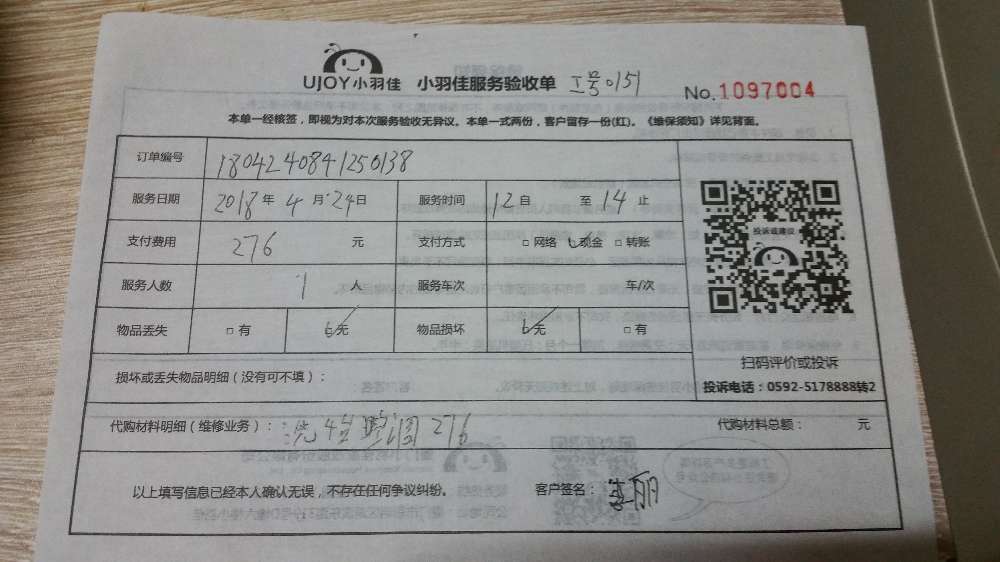 UJOY小羽佳 小羽佳服务验收单 工号0151 No.1097004
本单一经核签，即视为对本次服务验收无异议。本单一式两份，客户留存一份(红)。《维保须知》详见背面。
订单编号 1804240841250138
服务日期 2018年4月24日 服务时间 12自 至14止
支付费用 276 元 支付方式 □网络 现金 □转账
服务人数 1 人 服务车次 车/次
物品丢失 □有 无 物品损坏 无 □有
投诉或建议
扫码评价或投诉
投诉电话：0592-5178888转2
损坏或丢失物品明细（没有可不填）：
代购材料明细（维修业务）：洗4台空调276 代购材料总额： 元
以上填写信息已经本人确认无误，不存在任何争议纠纷。 客户签名：李丽